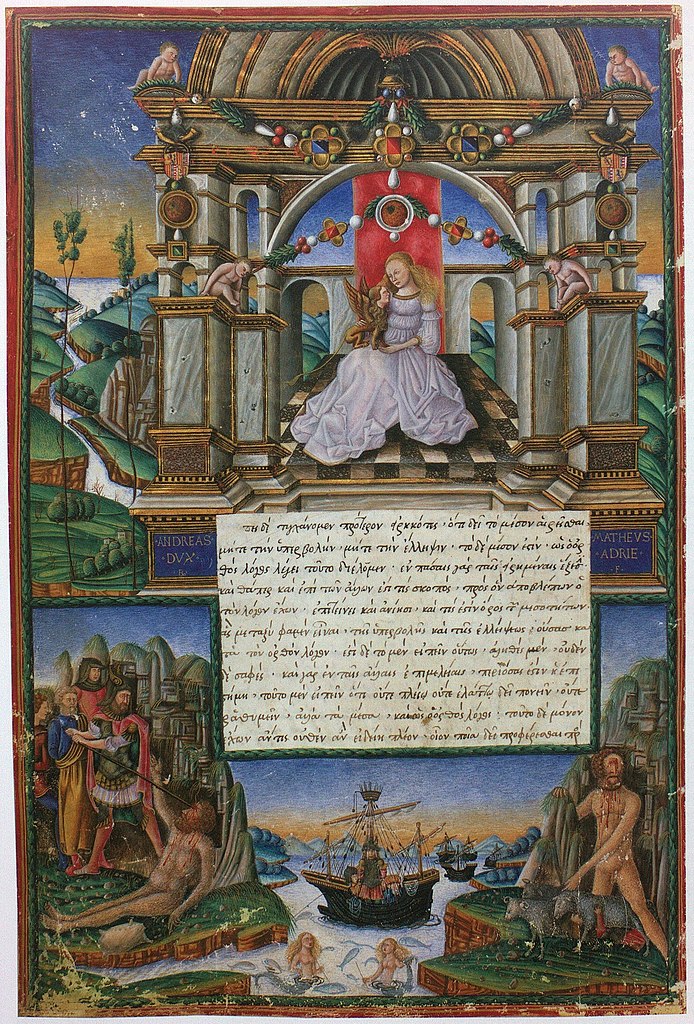 δὲ τυγχάνομεν πρότερον εἰρηκότες · ὅτι δεῖ τὸ μέσον αἱρεῖσθαι
μήτε τὴν ὑπερβολήν · μήτε τὴν ἔλλειψιν · τὸ δὲ μέσον ἐστὶν · ὡς ὁ ὀρ
θὸς λόγος λέγει τοῦτο διέλωμεν · ἐν πάσαις γὰρ ταῖς εἰρημέναις ἕξεσι
καθάπερ καὶ ἐπὶ τῶν ἄλλων ἔστι τις σκοπός · πρὸς ὃν ἀποβλέπων ὁ
τὸν λόγον ἔχων · ἐπιτείνει καὶ ἀνίησι · καὶ τίς ἐστιν ὅρος τῶν μεσοτήτων
ἃς μεταξύ φαμεν εἶναι · τῆς ὑπερβολῆς καὶ τῆς ἐλλείψεως · οὔσας κα
τὰ τὸν ὀρθὸν λόγον · ἔστι δὲ τὸ μὲν εἰπεῖν οὕτως · ἀληθὲς μὲν · οὐδὲν
δὲ σαφές · καὶ γὰρ ἐν ταῖς ἄλλαις ἐπιμελείαις · περὶ ὅσας ἐστὶν ἐπι
στήμη · τοῦτο μὲν εἰπεῖν ὅτι οὔτε πλείω οὔτε ἐλάττω δεῖ πονεῖν · οὔτε
ῥαθυμεῖν · ἀλλὰ τὰ μέσα · καὶ ὡς ὁ ὀρθὸς λόγος · τοῦτο δὲ μόνον
ἔχων ἄν τις οὐθὲν ἂν εἰδείη πλέον · οἷον ποῖα δεῖ προσφέρεσθαι πρ
ANDREAS
DVX
MATHEVS
ADRIE
F